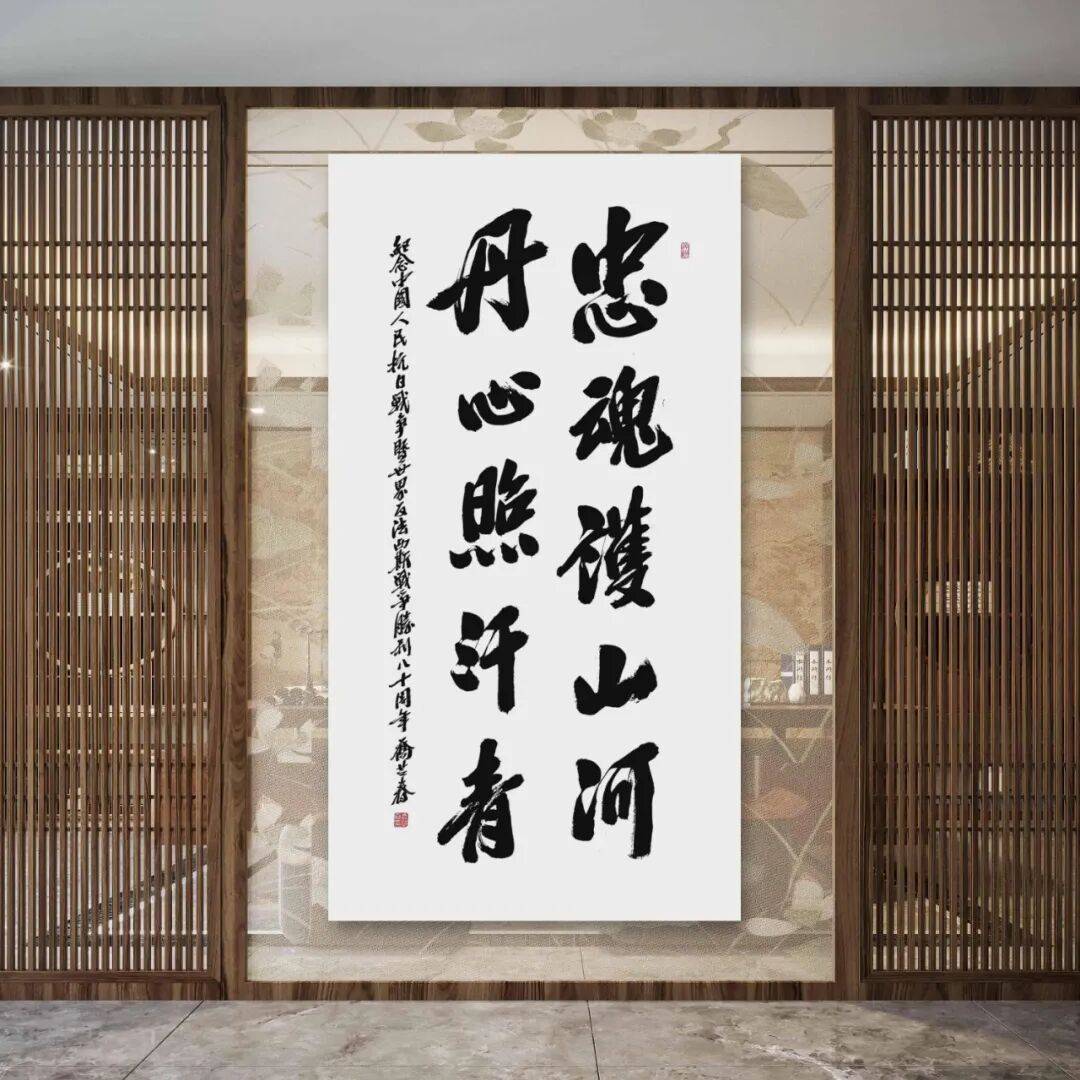 忠魂護山河
丹心照汗青
紀念中國人民抗日戰爭暨世界反法西斯戰爭勝利八十周年